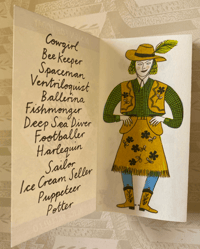 Cowgirl
Bee Keeper
Spaceman
Ventriloquist
Ballerina
Fishmonger
Deep Sea Diver
Footballer
Harlequin
Sailor
Ice Cream Seller
Puppeteer
Potter